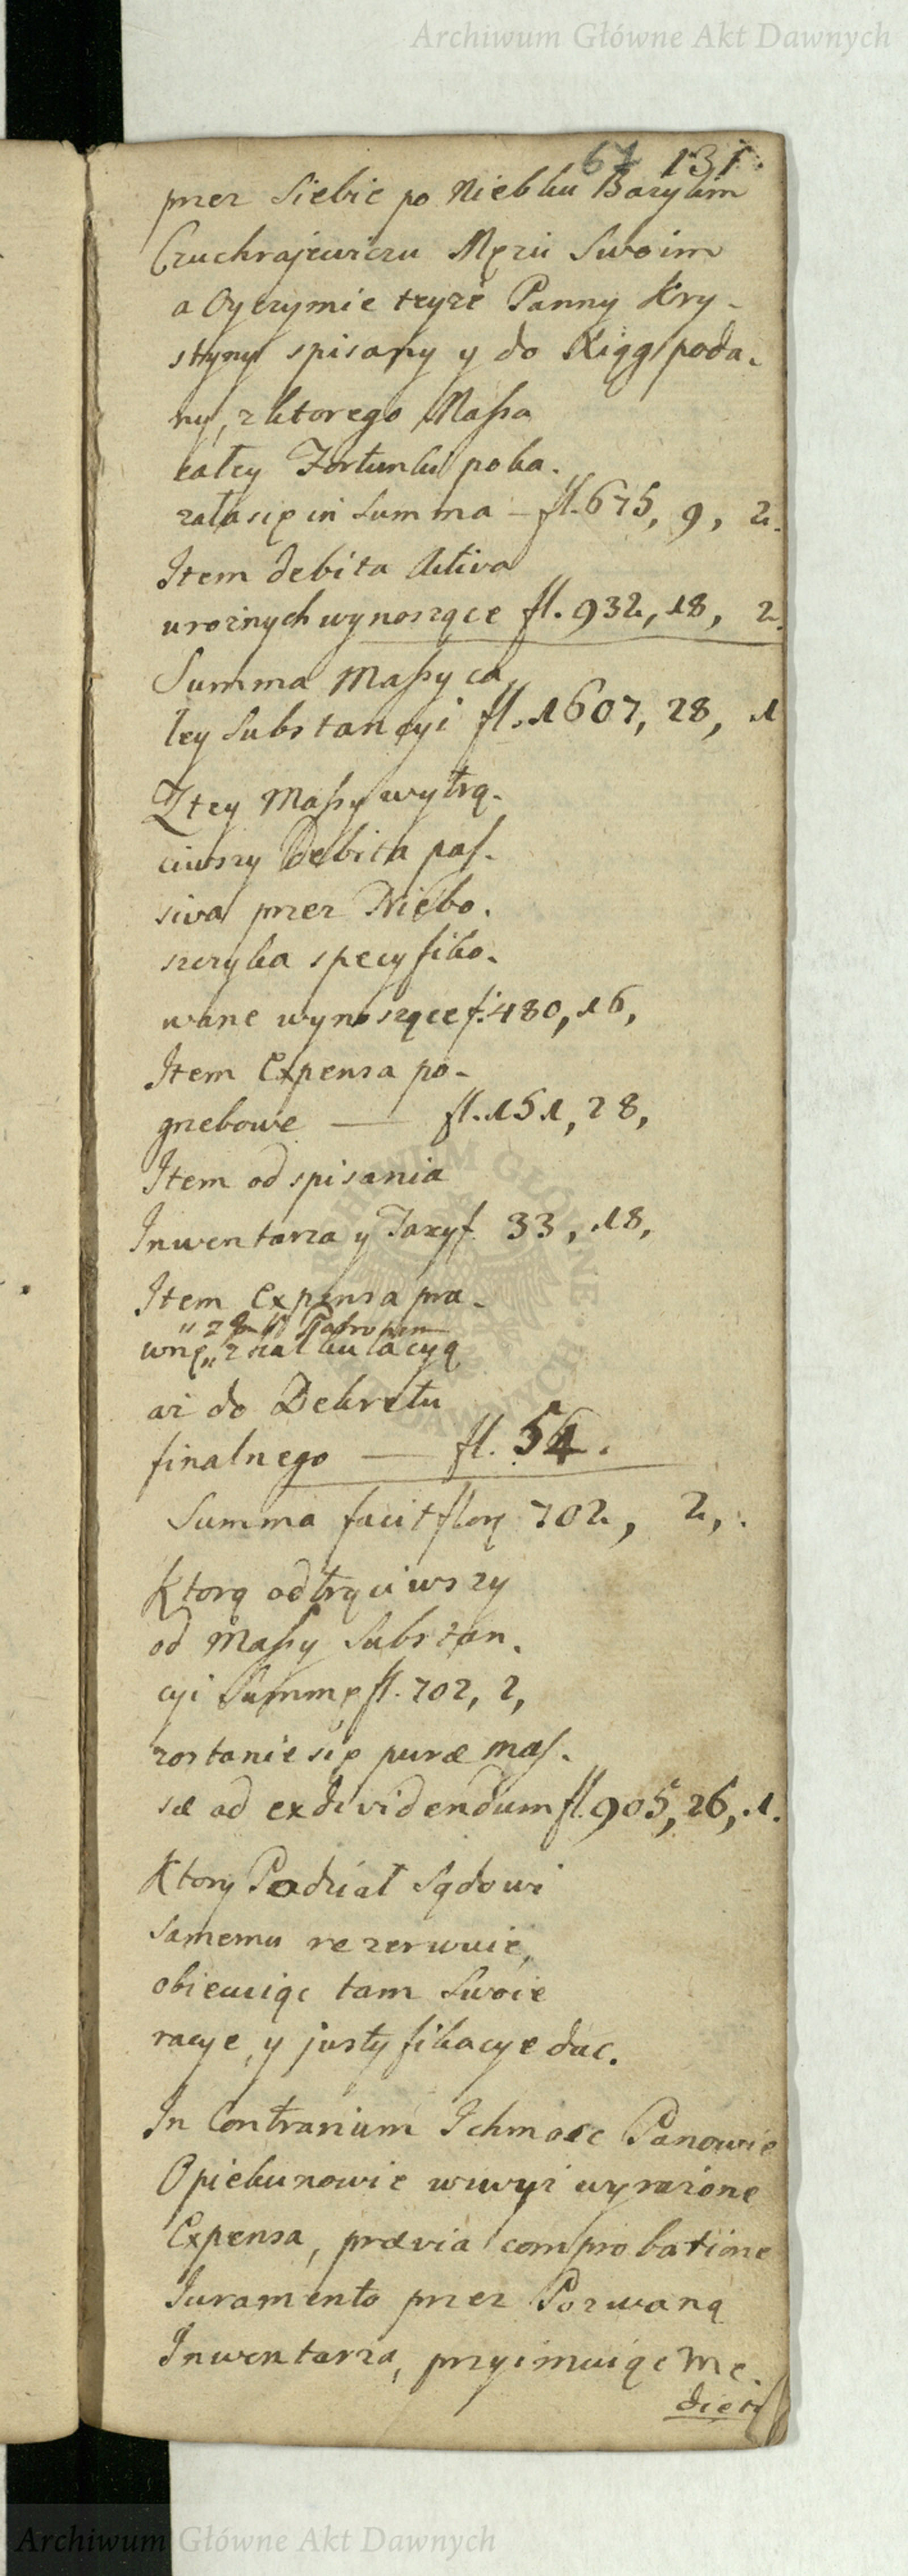 Archiwum Główne Akt Dawnych
67 131.
przez Siebie po Niebku Bazylim
Czuchrajewiczu Mężu Swoim
a Oyczymie teyże Panny Kry-
styny spisany y do Xiąg poda-
ny, z ktorego Massa
całey Fortunki poka-
zała się in Summa - fl. 675, 9, 2.
Item debita Activa
u roznych wynoszące fl. 932, 18, 2.
Summa Massy ca
łey Substancyi fl. 1607, 28, 1
Z tey Massy wytrą-
ciwszy Debita pas-
siva przez Niebo-
szczyka specyfiko-
wane wynoszące f. 480, 16,
Item Expensa po-
grzebowe — fl. 151, 28,
Item od spisania
Inwentarza y Taxy f. 33, 18,
Item Expensa pra-
wnę z kalkulacyą
aż do Dekretu
finalnego — fl. 54.
Summa facit flor 702, 2,
Ktorą odtrąciwszy
od Massy Substan-
cyi Summę fl. 702, 2,
zostanie się puræ mas-
sæ ad exdividendum fl. 905, 26, 1.
Ktory Podział Sądowi
samemu rezerwuie,
obiecuiąc tam Swoie
racye, y justyfikacye dac.
In Contrarium Ichmosc Panowie
Opiekunowie wzwyż wyrażone
Expensa, prævia comprobatione
Juramento przez Pozwaną
Inwentarza, przyimuiąc Me
dietatem
Archiwum Główne Akt Dawnych